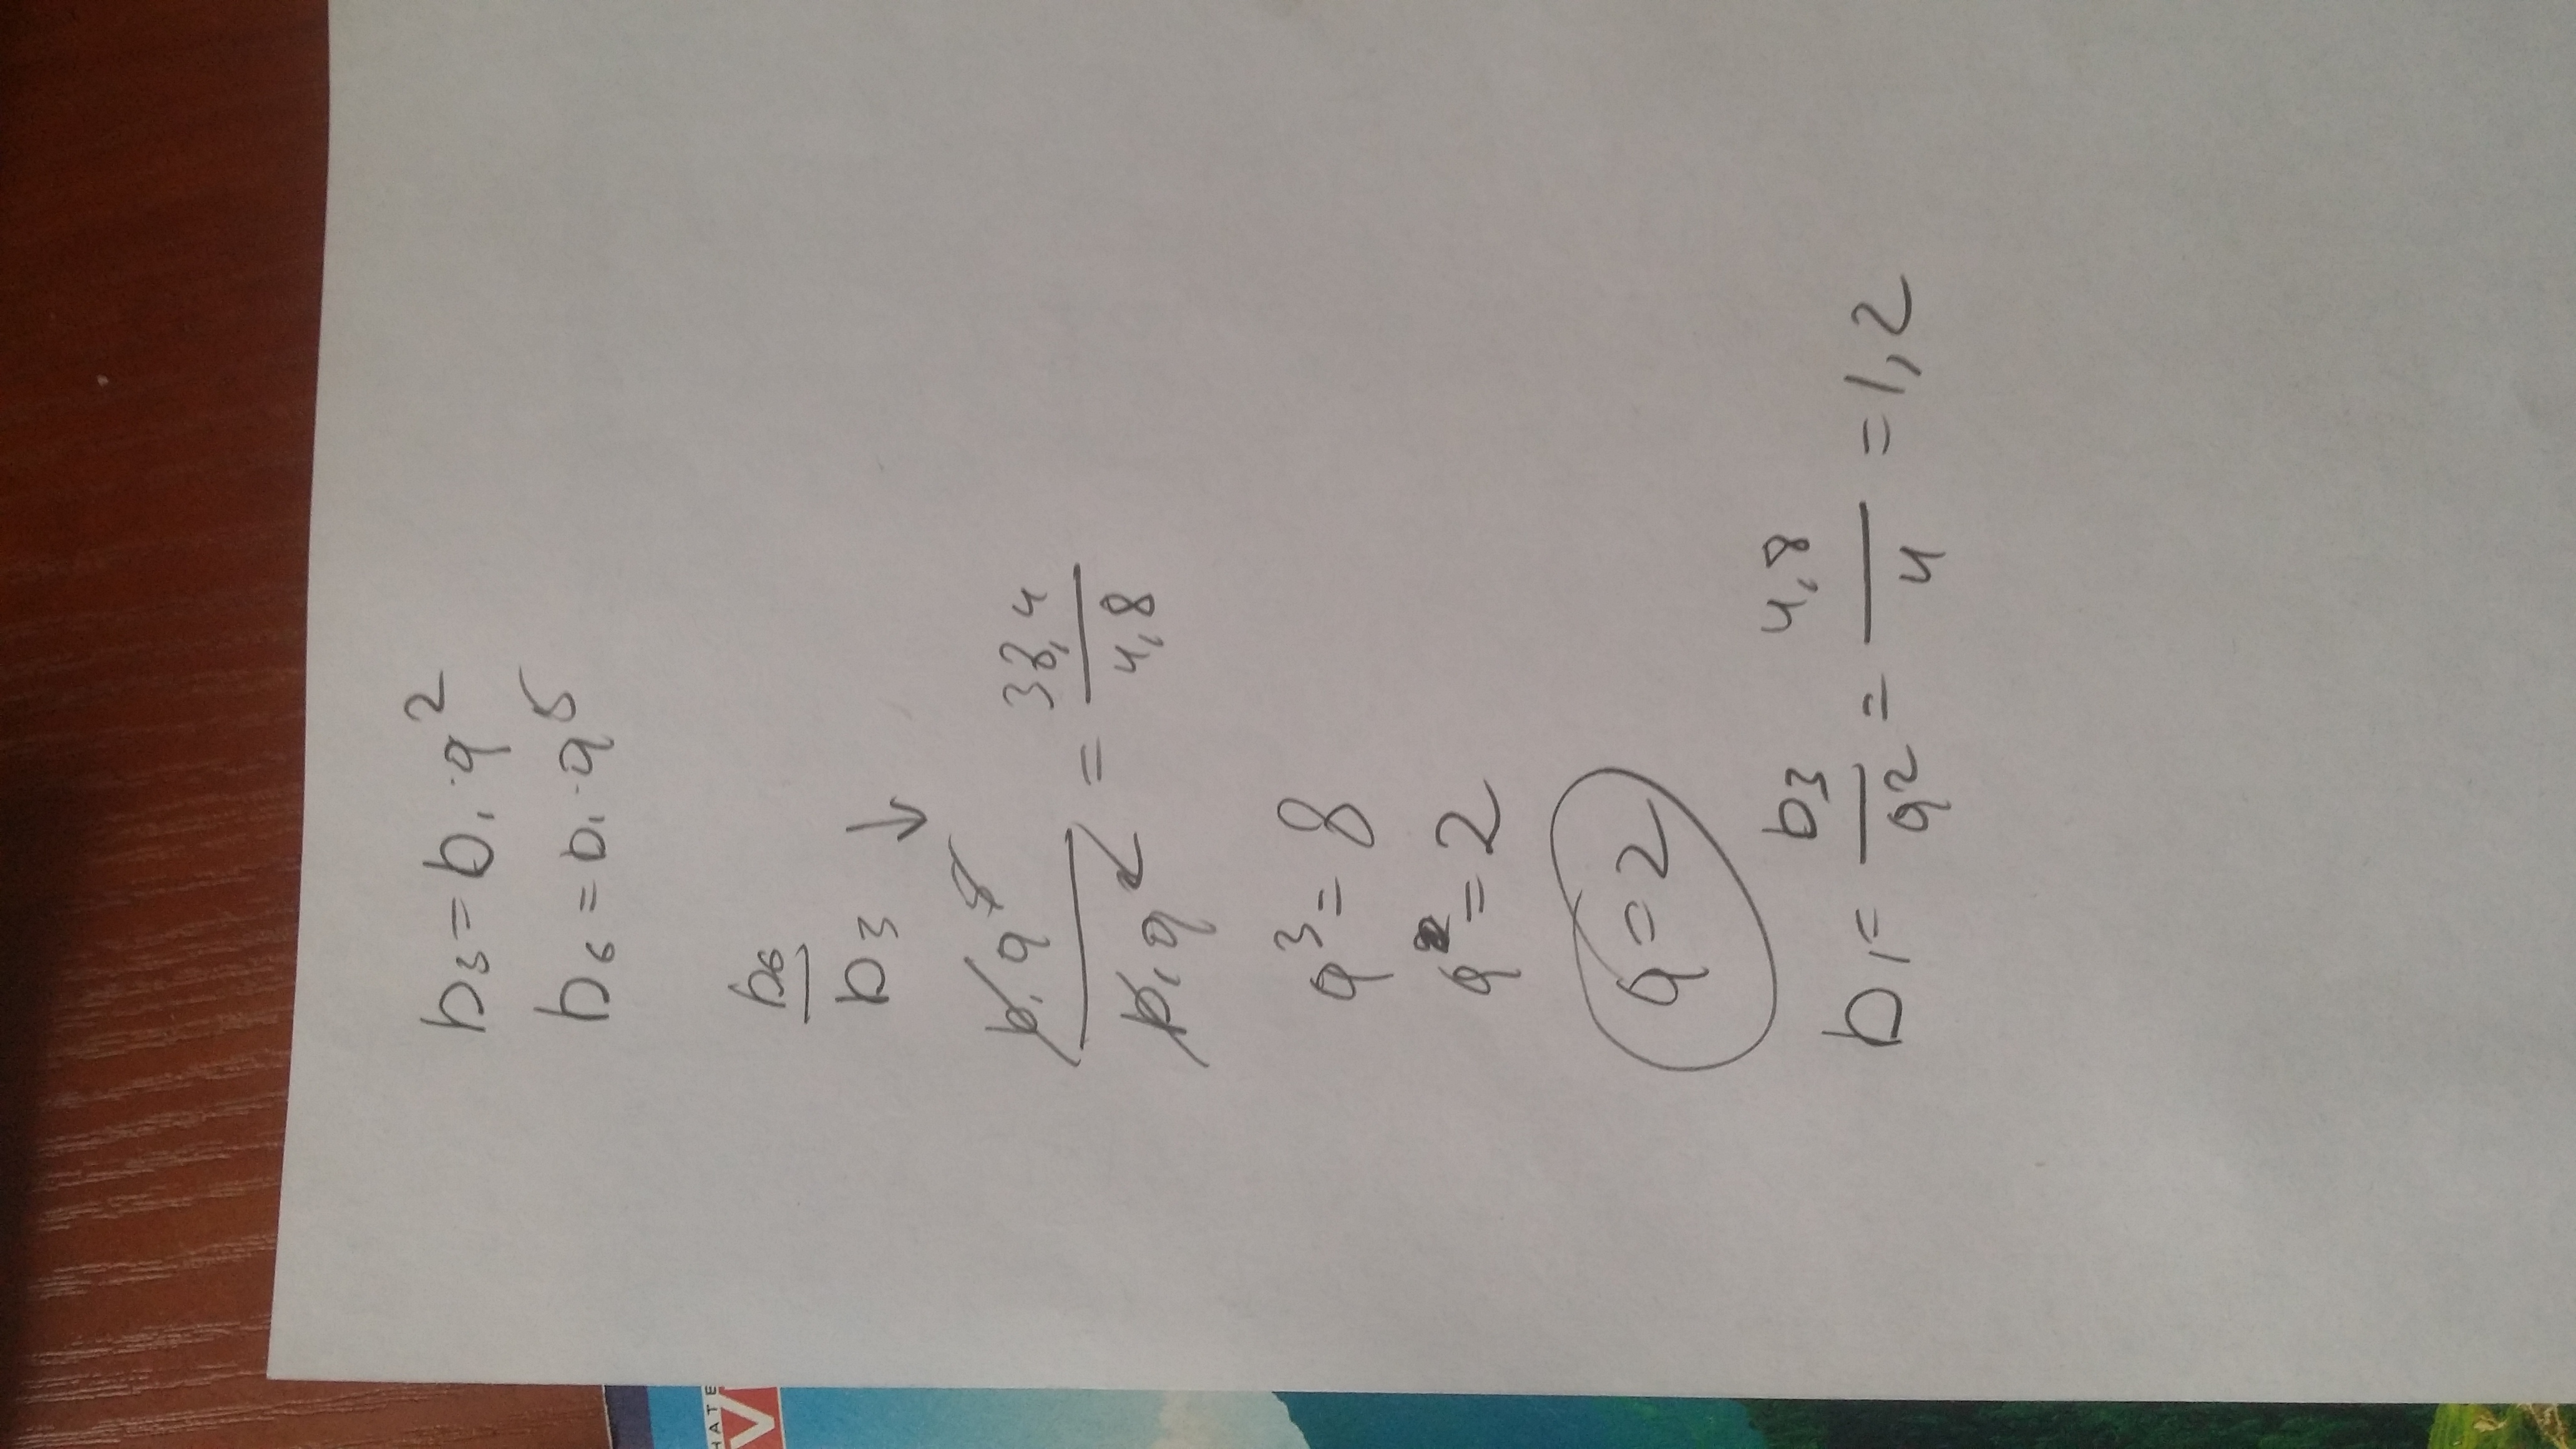 b₃ = b₁ · q²
b₆ = b₁ · q⁵
b₆/b₃ ↓
b₁q⁵/b₁q² = 38,4/4,8
q³ = 8
q = 2
q = 2
b₁ = b₃/q² = 4,8/4 = 1,2